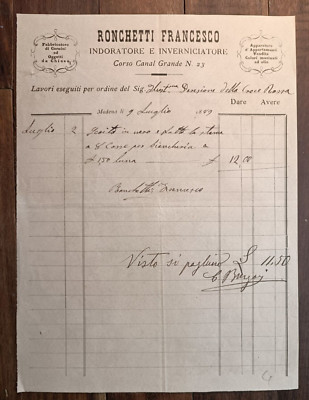 RONCHETTI FRANCESCO
INDORATORE E INVERNICIATORE
Corso Canal Grande N. 23
Fabbricatore
di Cornici
ed
Oggetti
da Chiesa
Apparatore
d'Appartamenti
Vendita
Colori macinati ad
olio
Lavori eseguiti per ordine del Sig. Direzione della Croce Rossa
Dare Avere
Modena li 9 Luglio 89
Luglio 2 in nero a tutte le
a 8 Casse per biancheria a
£ 1,50 l'una £ 12.00
Ronchetti Francesco
Visto si paghino £ 11.50